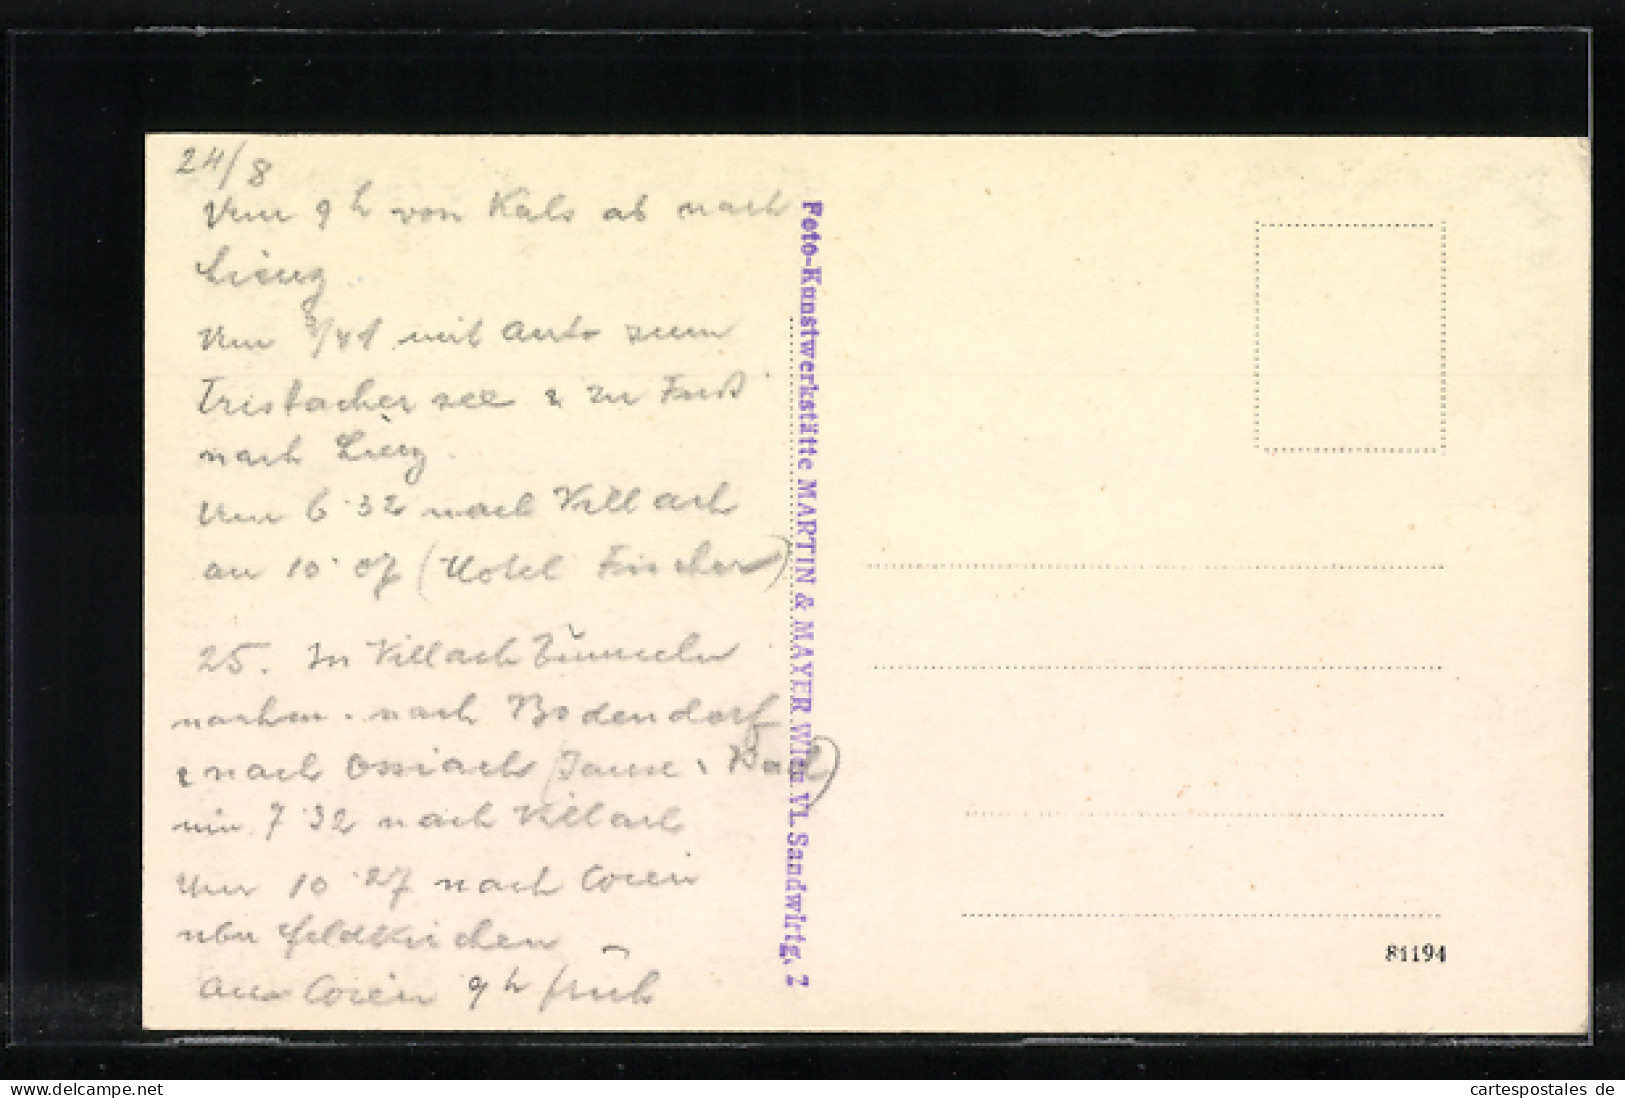 24/8
Um 9 h von Kals ab nach
Lienz.
Um 3/41 mit Auto zum
Tristacher see & zu Fuß
nach Lienz.
Um 6.32 nach Villach
an 10.07 (Hotel Fischer)
25. In Villach
nachm. nach Bodendorf
& nach Ossiach (Jause, Bad)
um 7.32 nach Villach
Um 10.27 nach Wien
über Feldkirchen
an Wien 9 h früh
Foto-Kunstwerkstätte MARTIN & MAYER Wien VI. Sandwirtg. 2
81194
cartespostales de